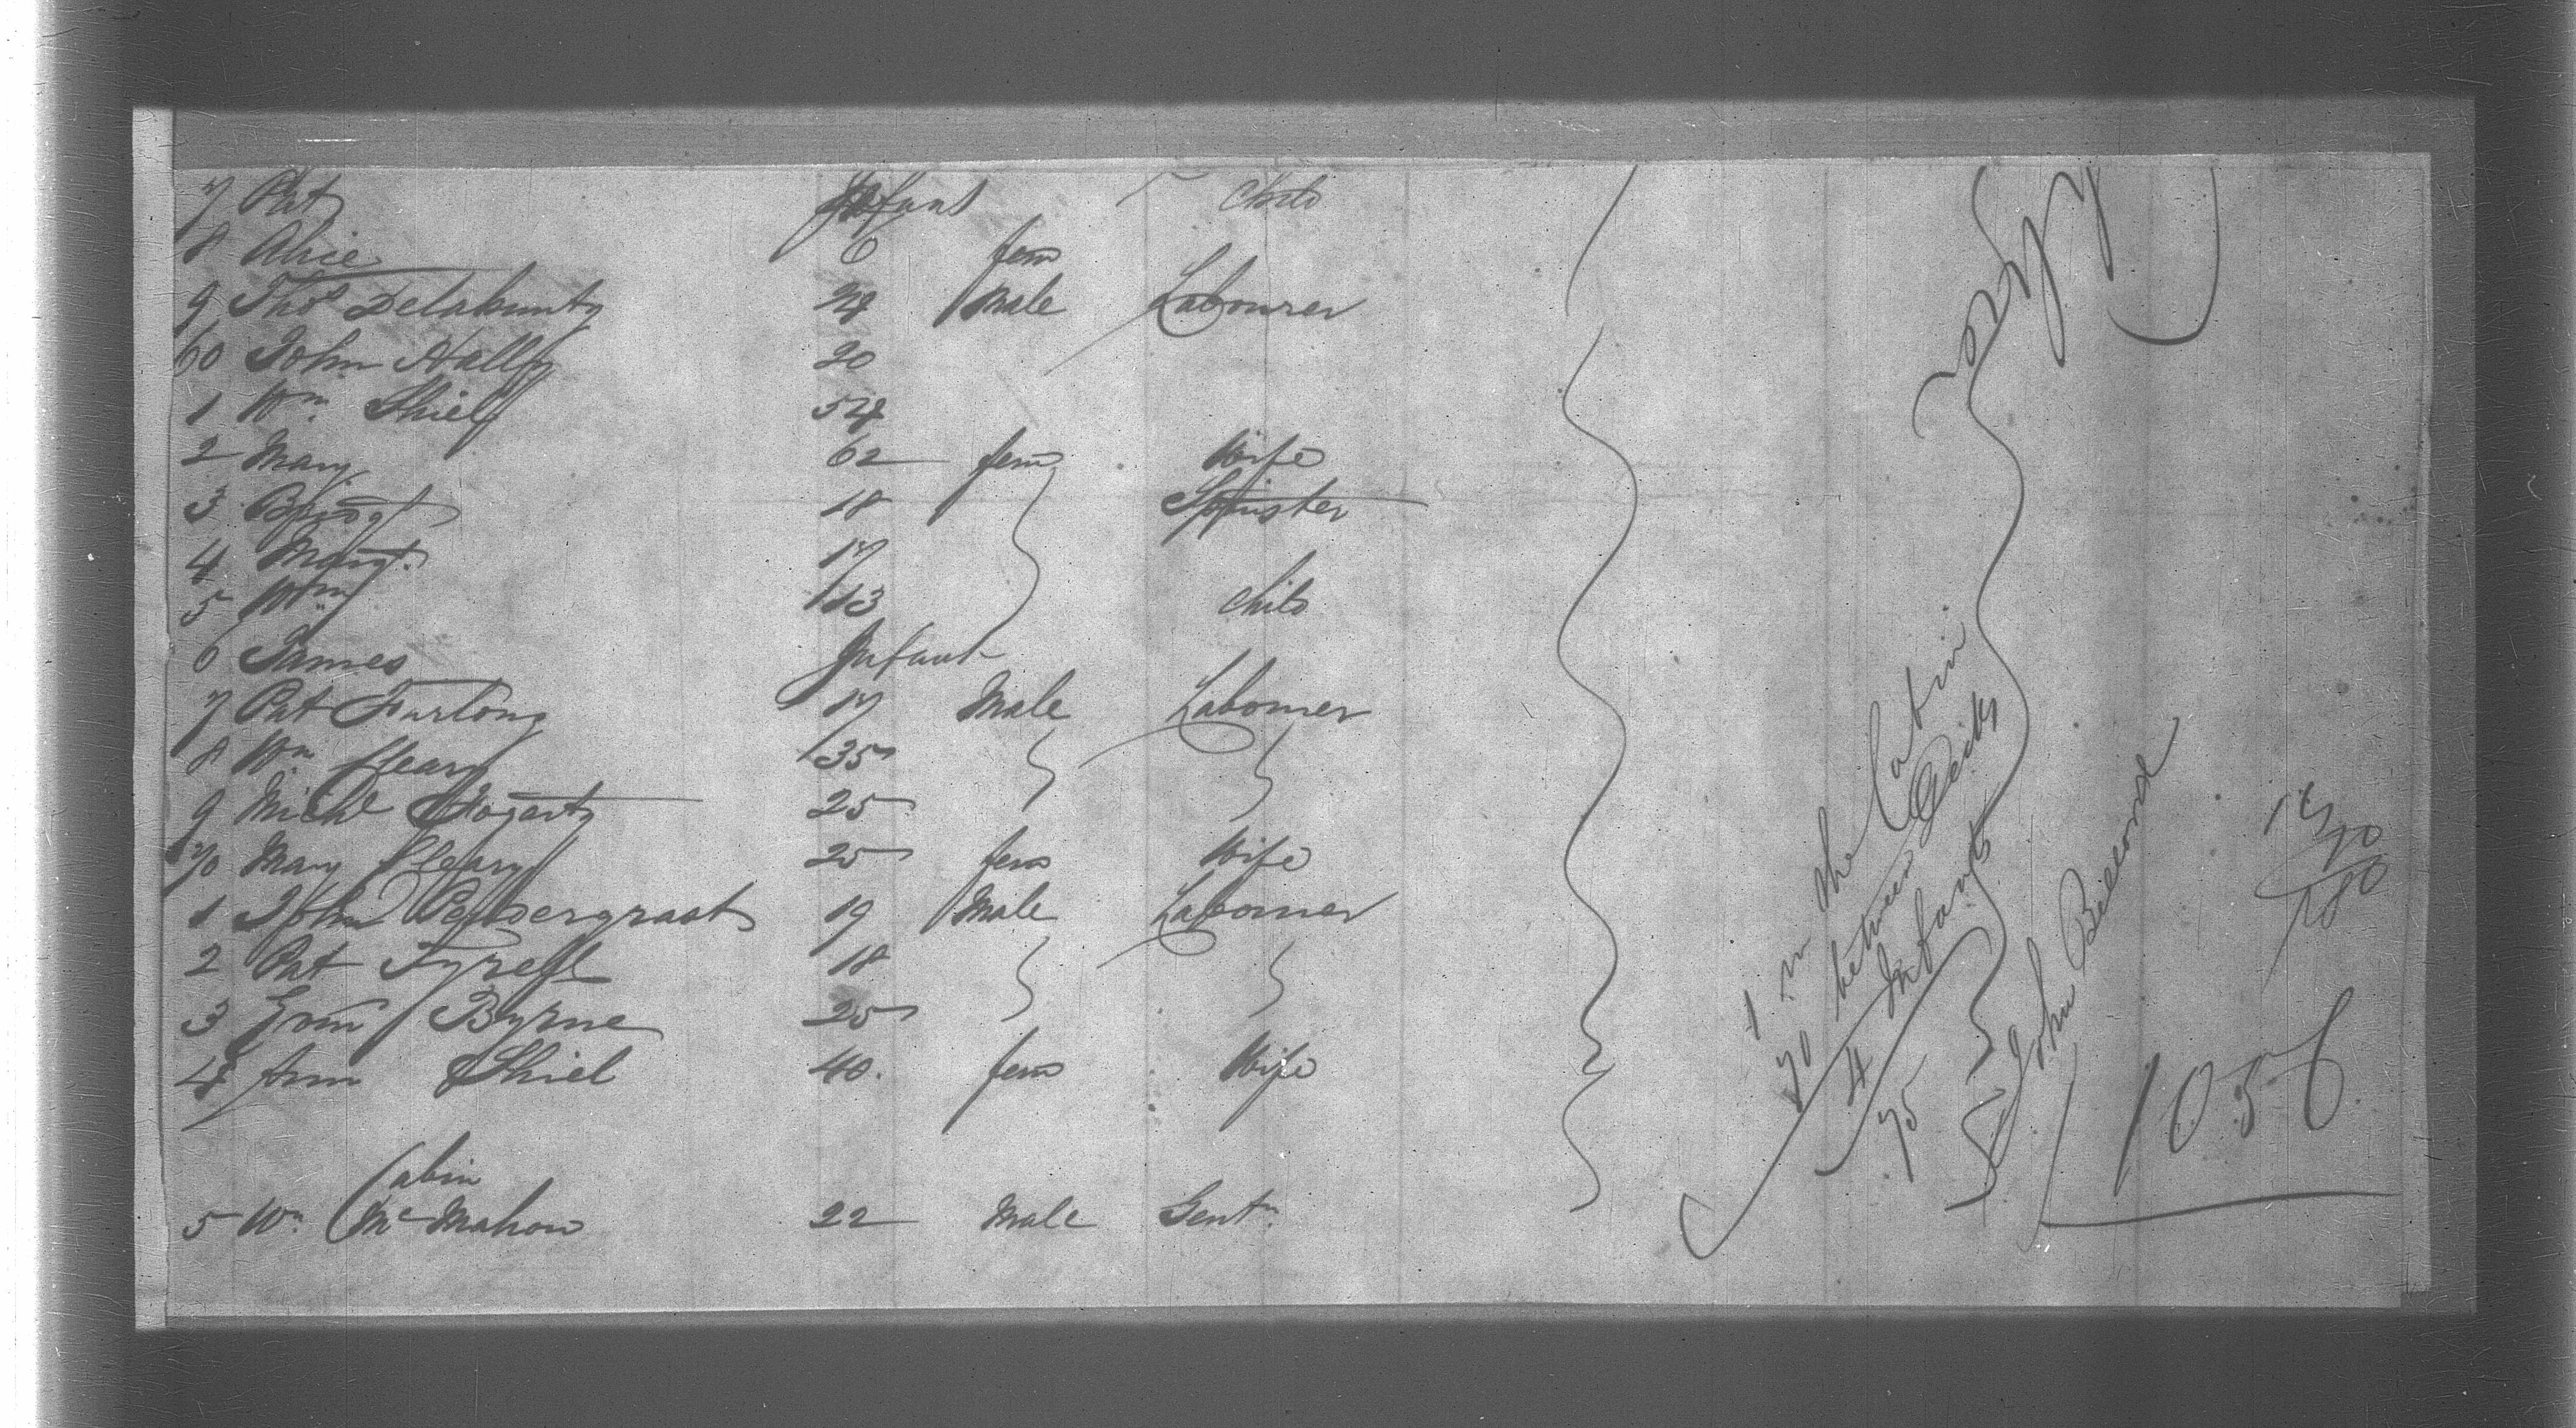 7 Pat Infant Child
8 Alice 6 fem
9 Thos Delahunty 24 Male Labourer
60 John Hally 20
1 Wm Shiel 54
2 Mary 62 fem Wife
3 Bridgt 18 Spinster
4 Margt. 17
5 Wm 13 Child
6 James Infant
7 Pat Furlong 17 Male Labourer
8 Wm Cleary 35
9 Michl Fogarty 25
70 Mary Cleary 25 fem Wife
1 John Pendergrast 19 Male Labourer
2 Pat Tyrell 18
3 Byrne 25
4 Ann Shiel 40. fem Wife
Cabin
5 Wm. McMahon 22 Male Gentn.
1 in the Cabin
70 between Decks
4 Infants
75
John
1056